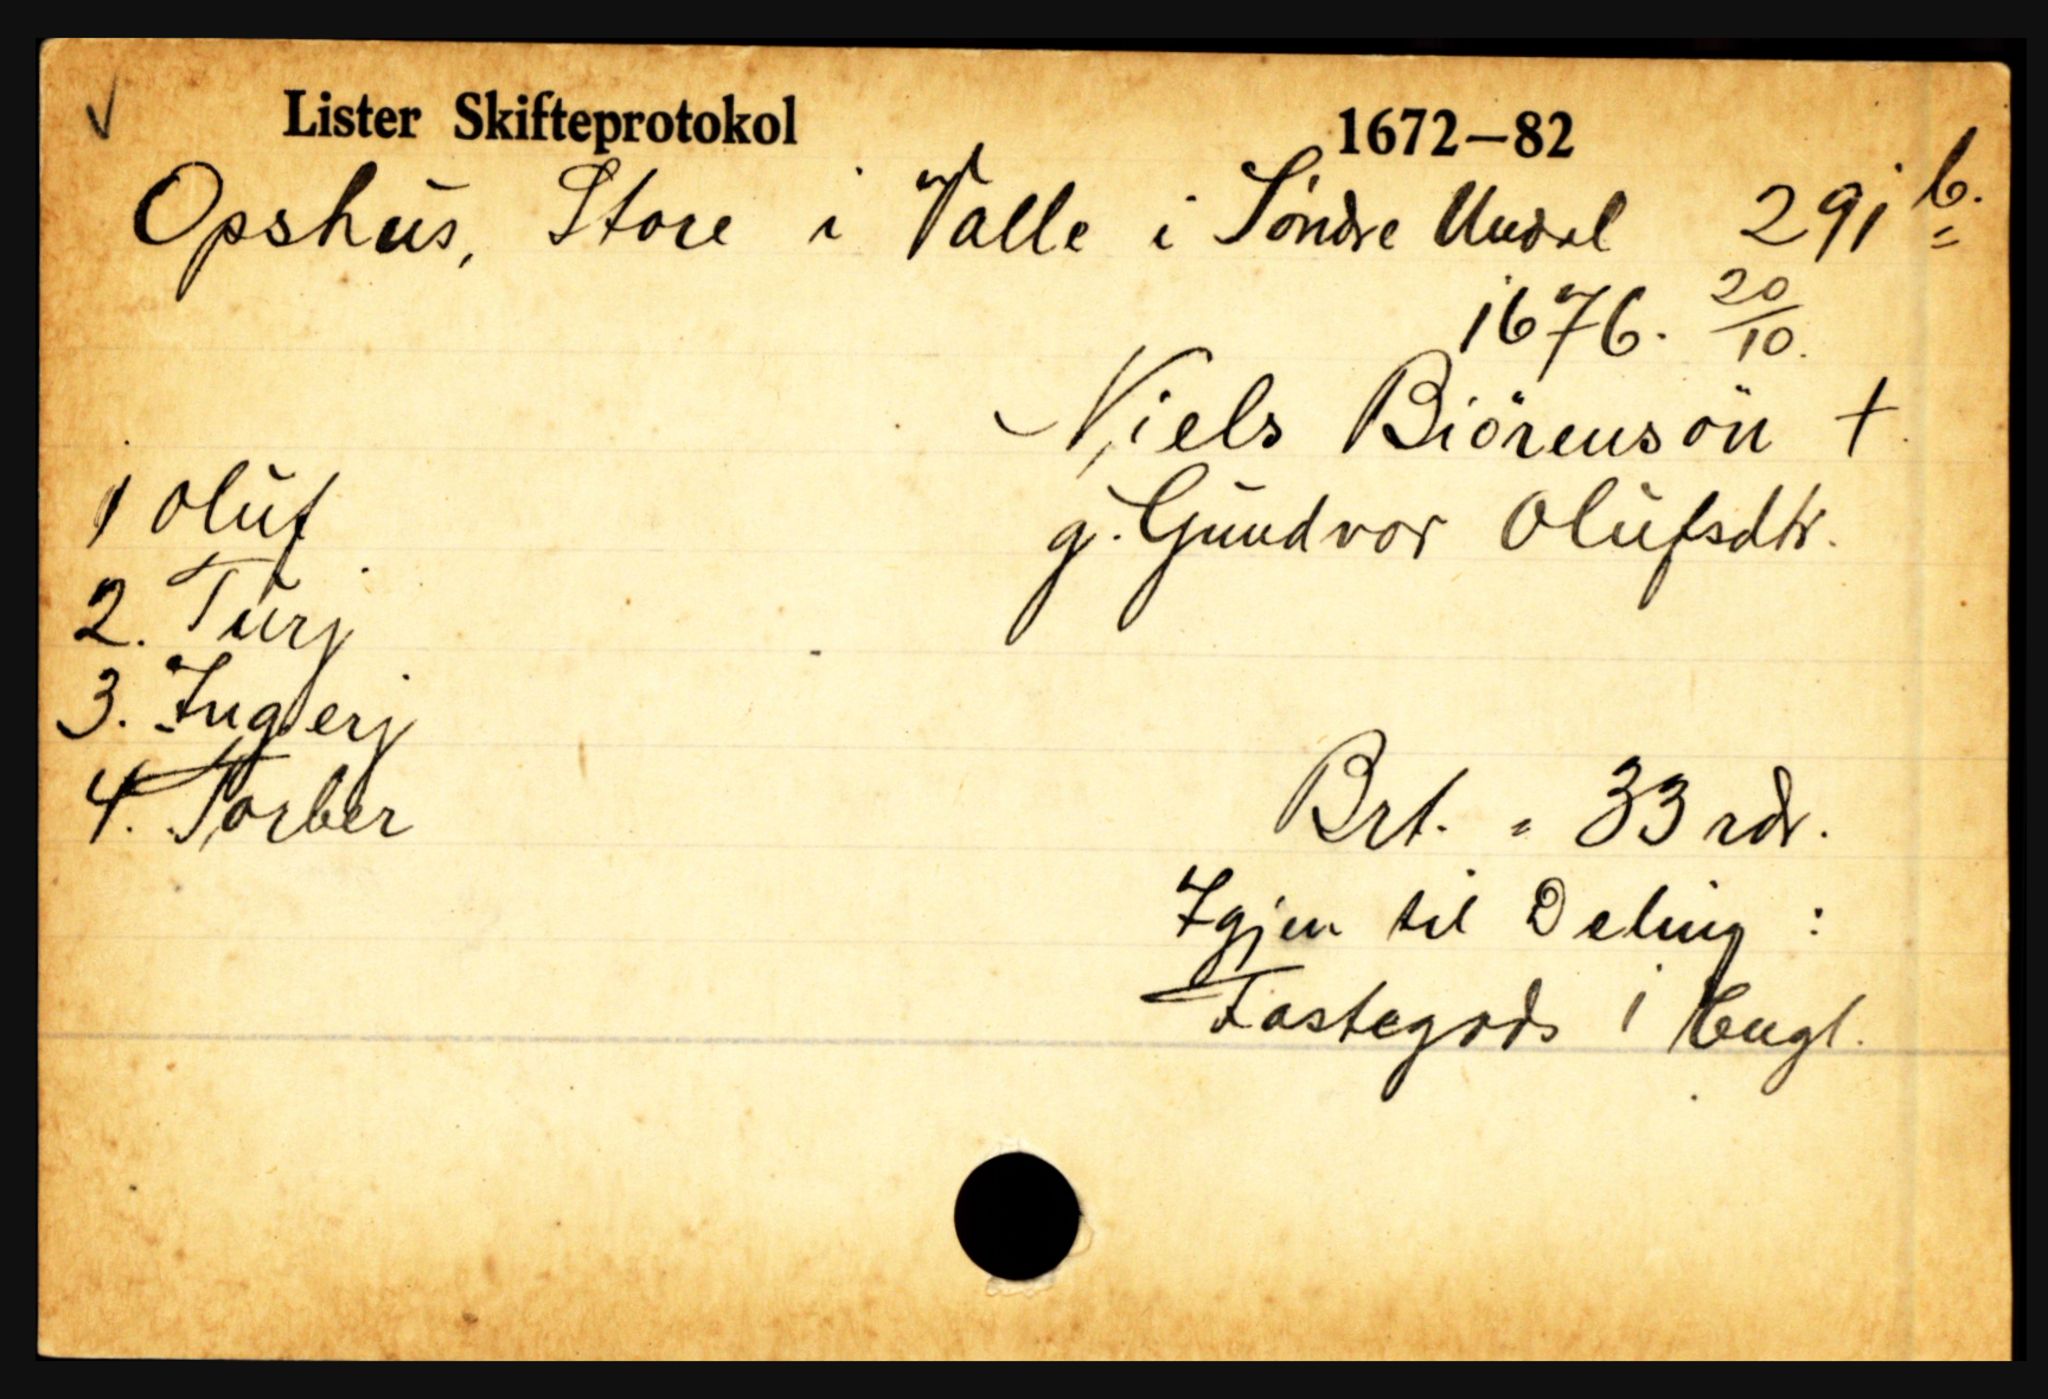 ✓ Lister Skifteprotokol 1672—82
Opshus, Store i Valle i Söndre Undal 291 b.
1676. 20/10.
Niels Biörensön †.
1 Oluf
g. Gundvor Olufsdtr.
2. Turj
3. Ingerj
4. Torber
Brt. = 33 rdr.
Igjen til Deling :
Fastegods i Engl.